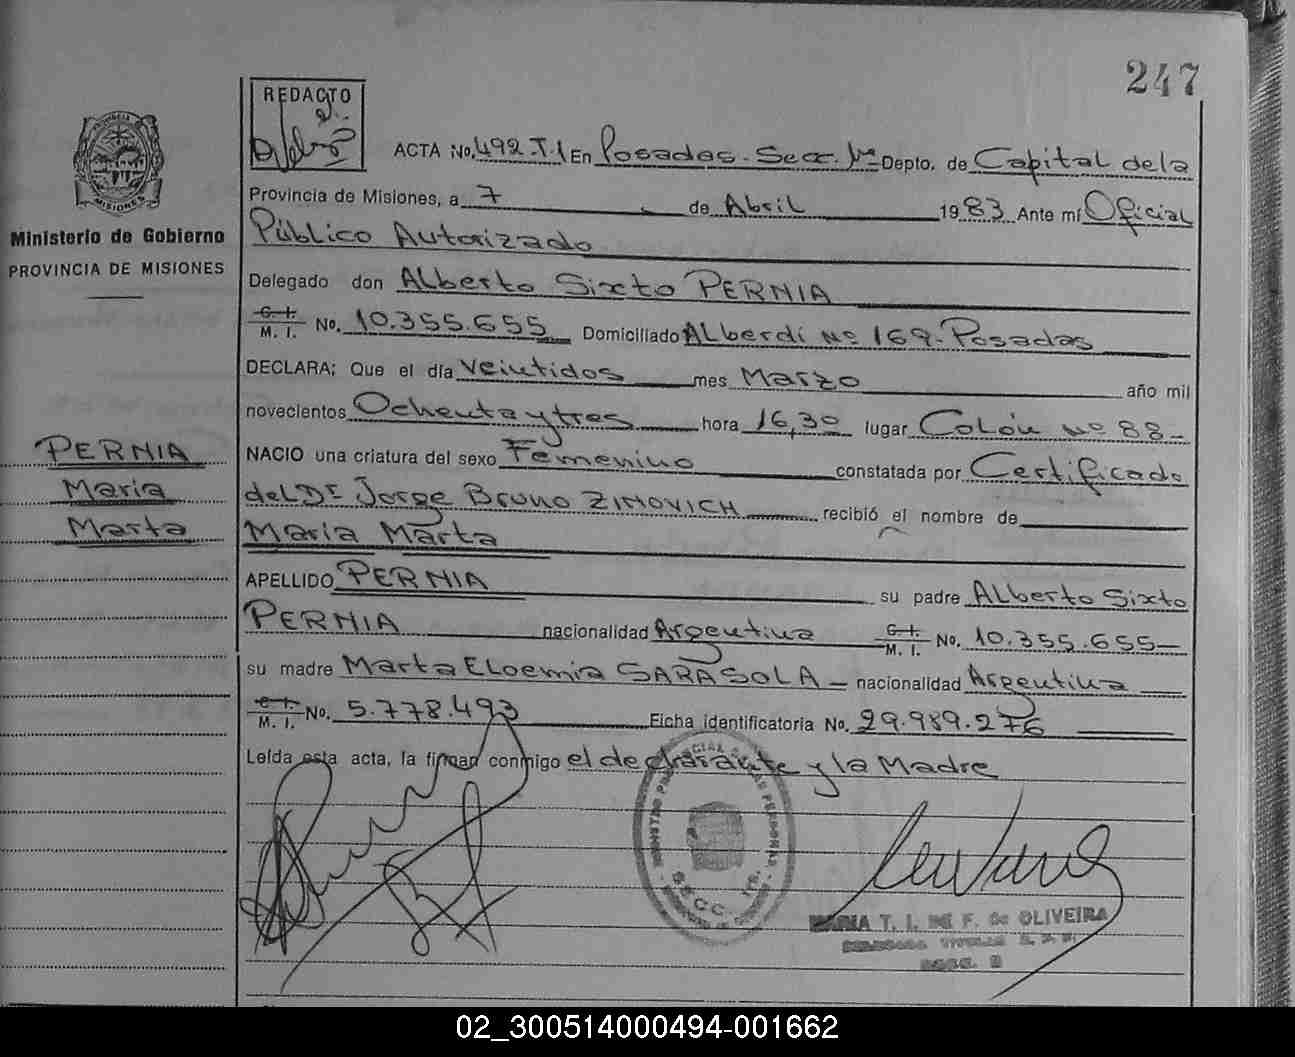 247
REDACTO
ACTA No. 492.T.I En Posadas. Secc. 1ra Depto. de Capital de la
Provincia de Misiones, a 7 de Abril 1983 Ante mí Oficial
Público Autorizado
PROVINCIA
MISIONES
Ministerio de Gobierno
PROVINCIA DE MISIONES
Delegado don Alberto Sixto PERNIA
C. I.
M. I. No. 10.355.655 Domiciliado Alberdi Nº 169-Posadas
DECLARA; Que el día Veintidos mes Marzo año mil
novecientos Ochenta y tres hora 16,30 lugar Colón Nº 88-
NACIO una criatura del sexo Femenino constatada por Certificado
del Dr Jorge Bruno ZIMOVICH recibió el nombre de
María Marta
PERNIA
María
Marta
APELLIDO PERNIA su padre Alberto Sixto
PERNIA nacionalidad Argentina C. I. M. I. No. 10.355.655-
su madre Marta Eloemia SARASOLA - nacionalidad Argentina
C. I.
M. I. No. 5.778.493 Ficha identificatoria No. 29.989.276
Leída esta acta, la firman conmigo el declarante y la Madre
MARIA T. I. DE F. de OLIVEIRA
02_300514000494-001662